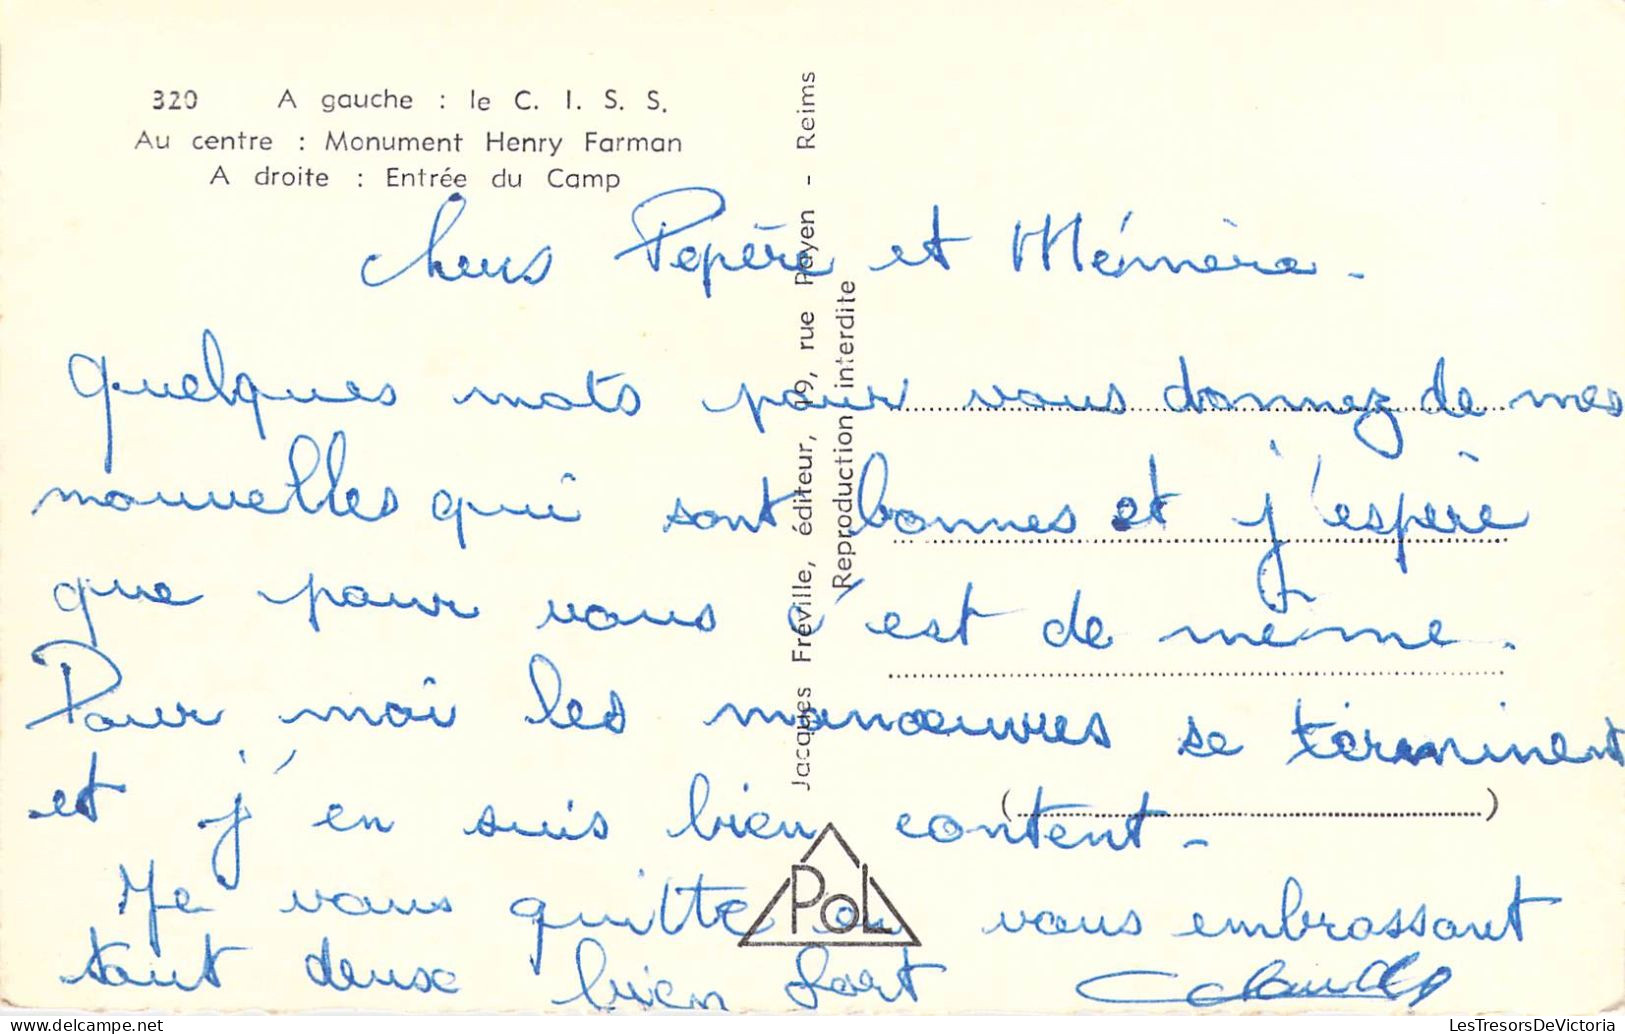 320 A gauche : le C. I. S. S.
Au centre : Monument Henry Farman
A droite : Entrée du Camp
Jacques Fréville, éditeur, 19, rue Payen - Reims
Reproduction interdite
Chers Pepère et Mémère -
quelques mots pour vous donnez de mes
nouvelles qui sont bonnes et j'espère
que pour vous c'est de même.
Pour moi les manœuvres se terminent
et j'en suis bien content -
Je vous quitte en vous embrassant
tout deux bien fort
PoL
LesTresorsDeVictoria